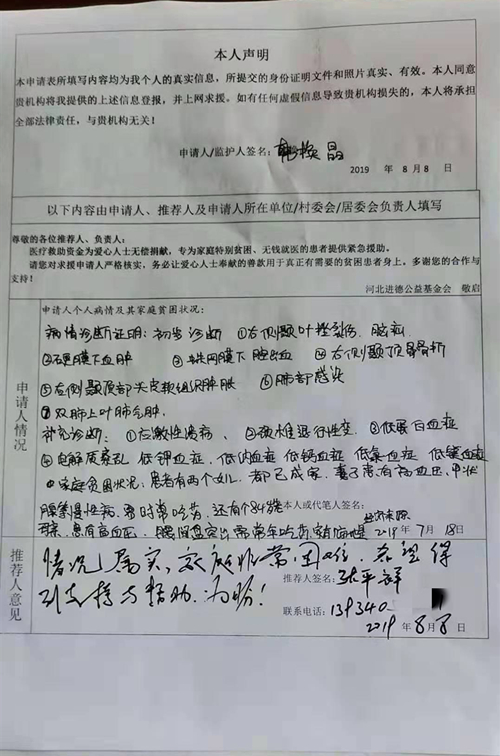 本人声明
本申请表所填写内容均为我个人的真实信息，所提交的身份证明文件和照片真实、有效。本人同意
贵机构将我提供的上述信息登报，并上网求援。如有任何虚假信息导致贵机构损失的，本人将承担
全部法律责任，与贵机构无关！
申请人/监护人签名：韩换晶
2019 年 8 月 8 日
以下内容由申请人、推荐人及申请人所在单位/村委会/居委会负责人填写
尊敬的各位推荐人、负责人：
医疗救助资金为爱心人士无偿捐献，专为家庭特别贫困、无钱就医的患者提供紧急援助。
请您对求援申请人严格核实，务必让爱心人士奉献的善款用于真正有需要的贫困患者身上。多谢您的合作与
支持！
河北进德公益基金会 敬启
申请人情况
申请人个人病情及其家庭贫困状况：
病情诊断证明：初步诊断 ①右侧颞叶挫裂伤、脑疝
②硬膜下血肿 ③蛛网膜下腔出血 ④右侧颞顶骨骨折
⑤右侧颞顶部头皮软组织肿胀 ⑥肺部感染
⑦双肺上叶肺气肿.
补充诊断：①应激性溃疡、②颈椎退行性变、③低蛋白血症
④电解质紊乱 低钾血症、低钠血症 低钙血症 低氯血症 低镁血症
家庭贫困状况：患者有两个女儿，都已成家，妻子患有高血压、甲状
腺等慢性病，需时常吃药，还有个84岁
母亲，患有高血压、腰间盘突出 常年吃药，家庭
本人或代笔人签名：
2019 年 7 月 18 日
推荐人意见
情况属实，家庭非常困难，希望得
到支持与帮助，为盼！
推荐人签名：张平祥
联系电话：139340
2019 年 8 月 8 日